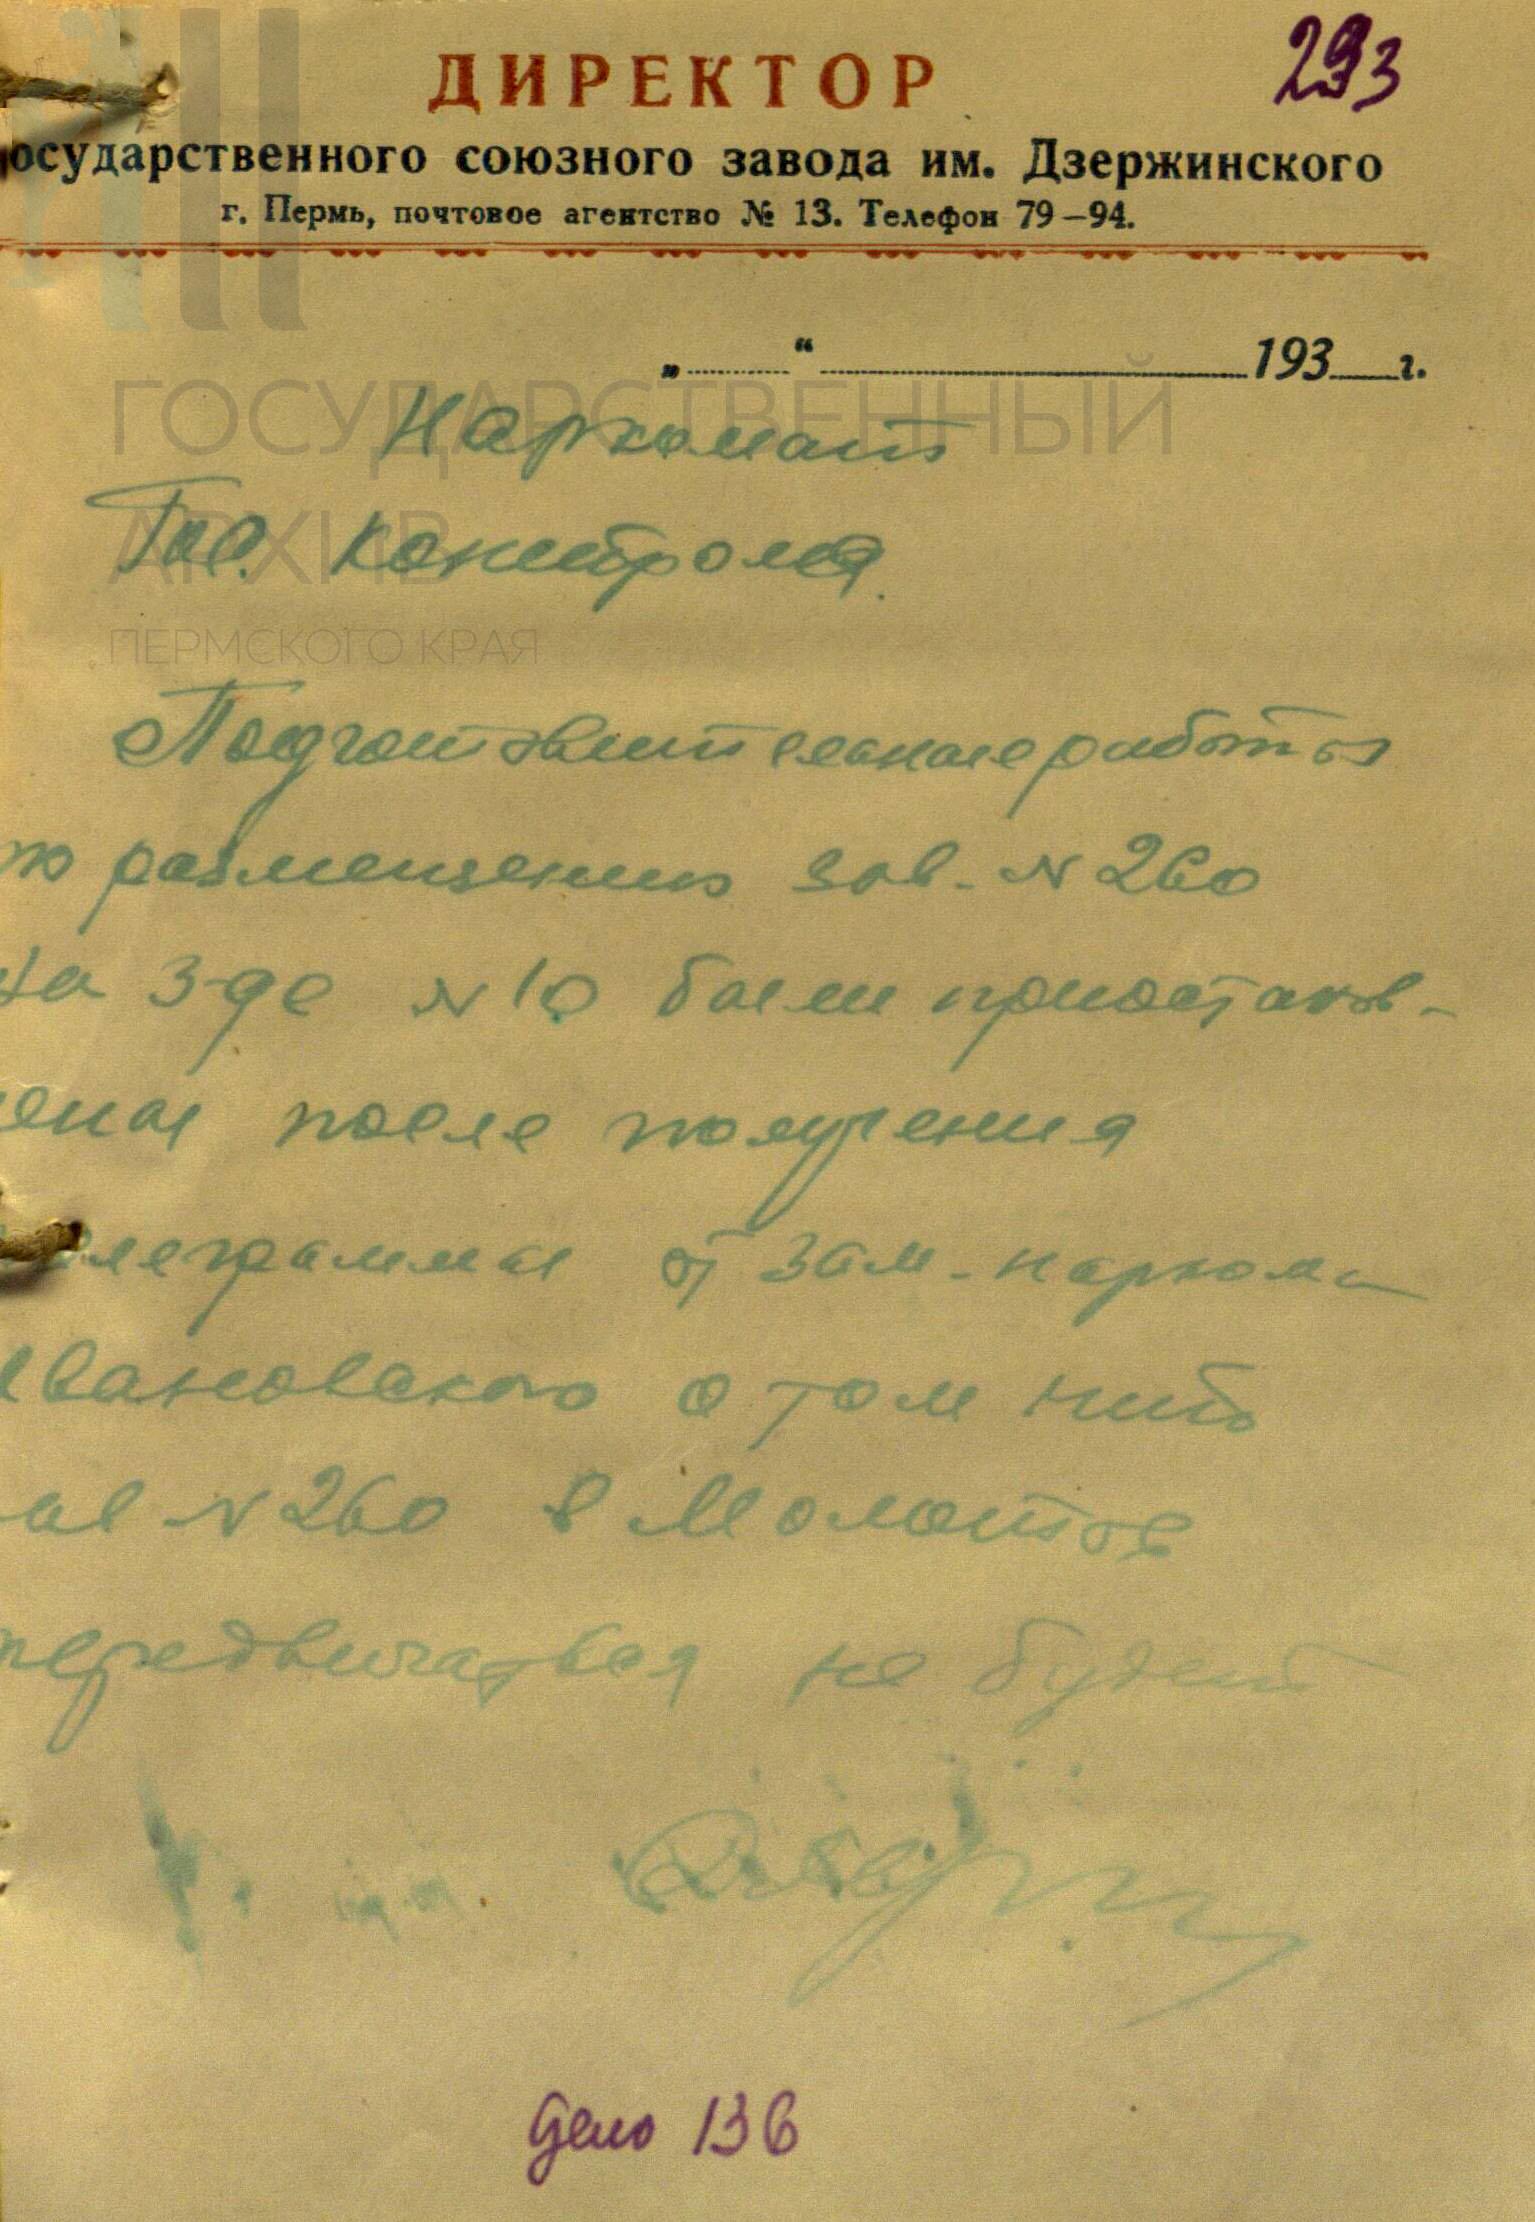 293
ДИРЕКТОР
осударственного союзного завода им. Дзержинского
г. Пермь, почтовое агентство № 13. Телефон 79—94.
„ “ 193 г.
Наркомат
Гос. Контроля.
Подготовительные работы
по размещению зав. N 260
на З-де N 10 были приостанов-
лены после получения
телеграммы от зам. наркома
Ивановского о том что
зав N 260 в Молотов
передвигаться не будет
дело 136
ГОСУДАРСТВЕННЫЙ
АРХИВ
ПЕРМСКОГО КРАЯ